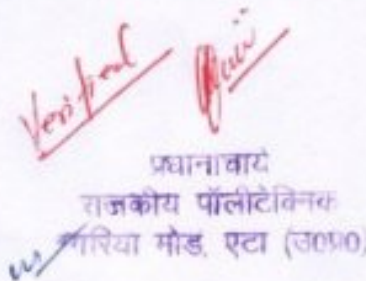 Verified
प्रधानाचार्य
राजकीय पॉलीटेक्निक
मोड़, एटा (उ०प्र०)